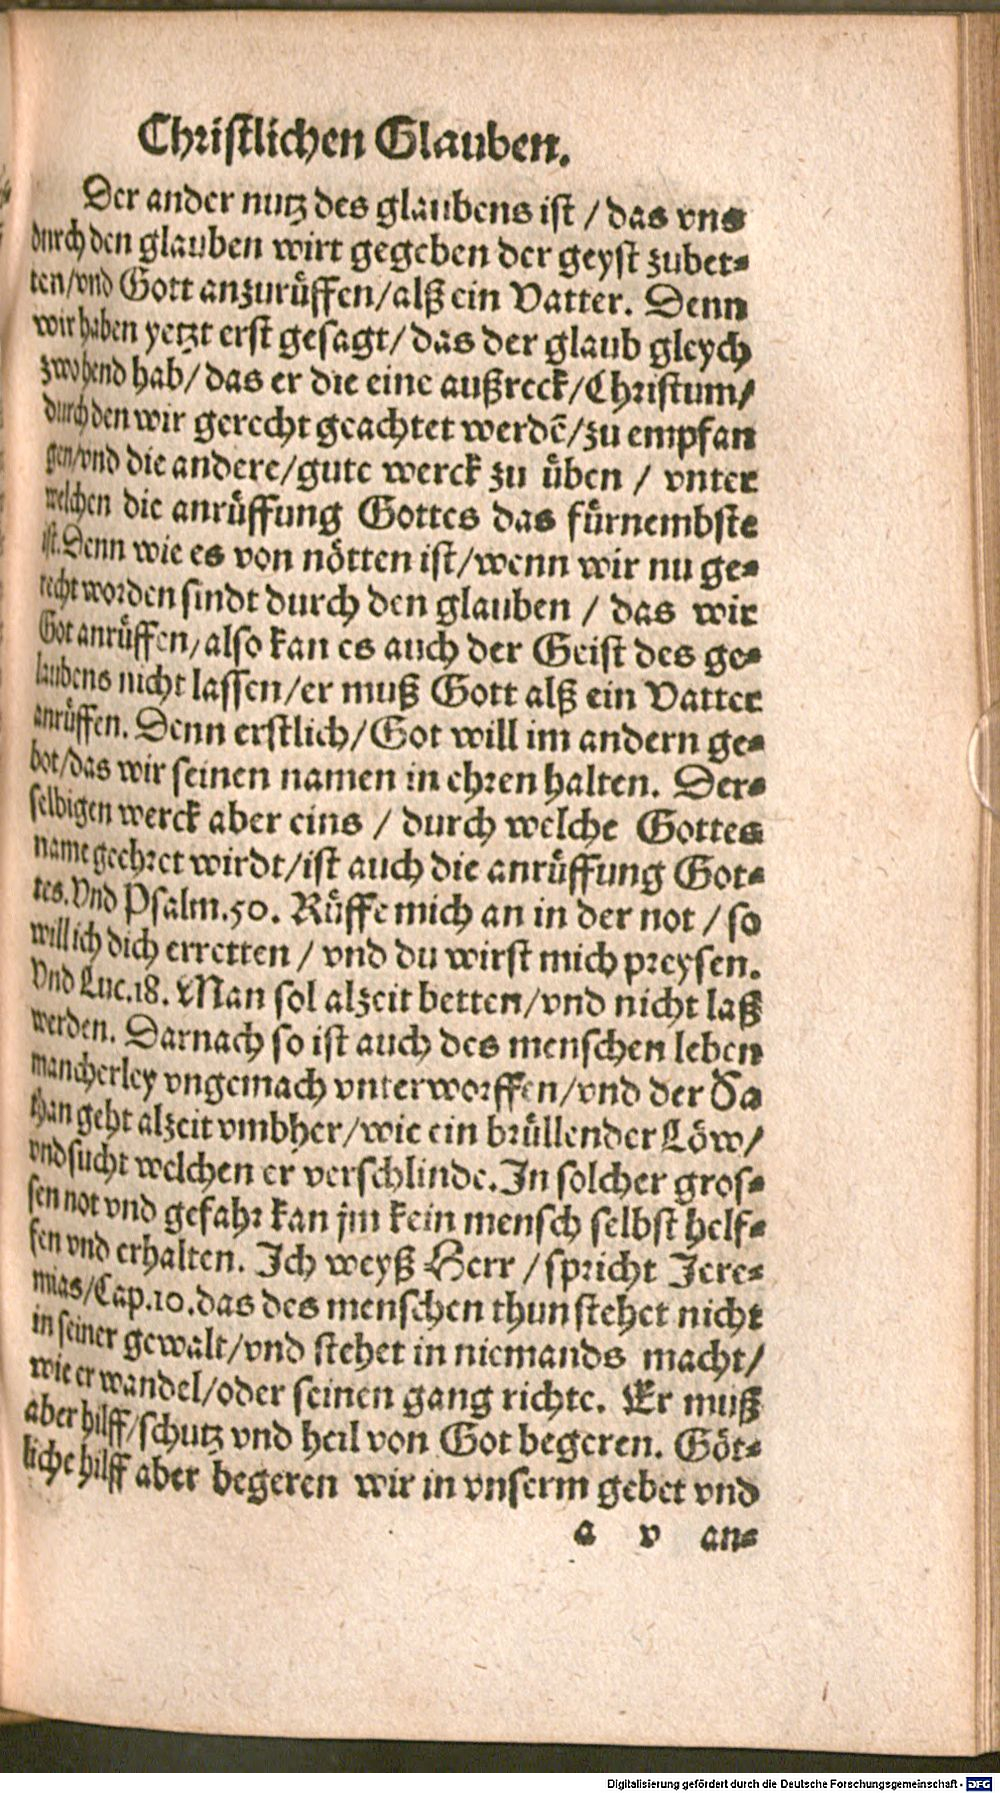 Christlichen Glauben.
Der ander nutz des glaubens ist / das vns
durch den glauben wirt gegeben der geyst zubet-
ten/vnd Gott anzurůffen/alß ein Vatter. Denn
wir haben yetzt erst gesagt/das der glaub gleych
zwo hend hab/das er die eine außreck/Christum/
durch den wir gerecht geachtet werdẽ/zu empfan
gen/vnd die andere/gute werck zu üben / vnter
welchen die anrůffung Gottes das fürnembste
ist. Denn wie es von nötten ist/wenn wir nu ge-
recht worden sindt durch den glauben / das wir
Got anrůffen/also kan es auch der Geist des ge-
laubens nicht lassen/er muß Gott alß ein Vatter
anrůffen. Denn erstlich/Got will im andern ge-
bot/das wir seinen namen in ehren halten. Der-
selbigen werck aber eins / durch welche Gottes
name geehret wirdt/ist auch die anrůffung Got-
tes. Vnd Psalm.50. Růffe mich an in der not / so
will ich dich erretten / vnd du wirst mich preysen.
Vnd Luc.18. Man sol alzeit betten/vnd nicht laß
werden. Darnach so ist auch des menschen leben
mancherley vngemach vnterworffen/vnd der Sa
than geht alzeit vmbher/wie ein brüllender Löw/
vnd sucht welchen er verschlinde. In solcher gros-
sen not vnd gefahr kan jm kein mensch selbst helf-
fen vnd erhalten. Ich weyß Herr / spricht Jere-
mias/Cap.10.das des menschen thun stehet nicht
in seiner gewalt/vnd stehet in niemands macht/
wie er wandel/oder seinen gang richte. Er muß
aber hilff/schutz vnd heil von Got begeren. Göt-
liche hilff aber begeren wir in vnserm gebet vnd
a v an-
Digitalisierung gefördert durch die Deutsche Forschungsgemeinschaft - DFG